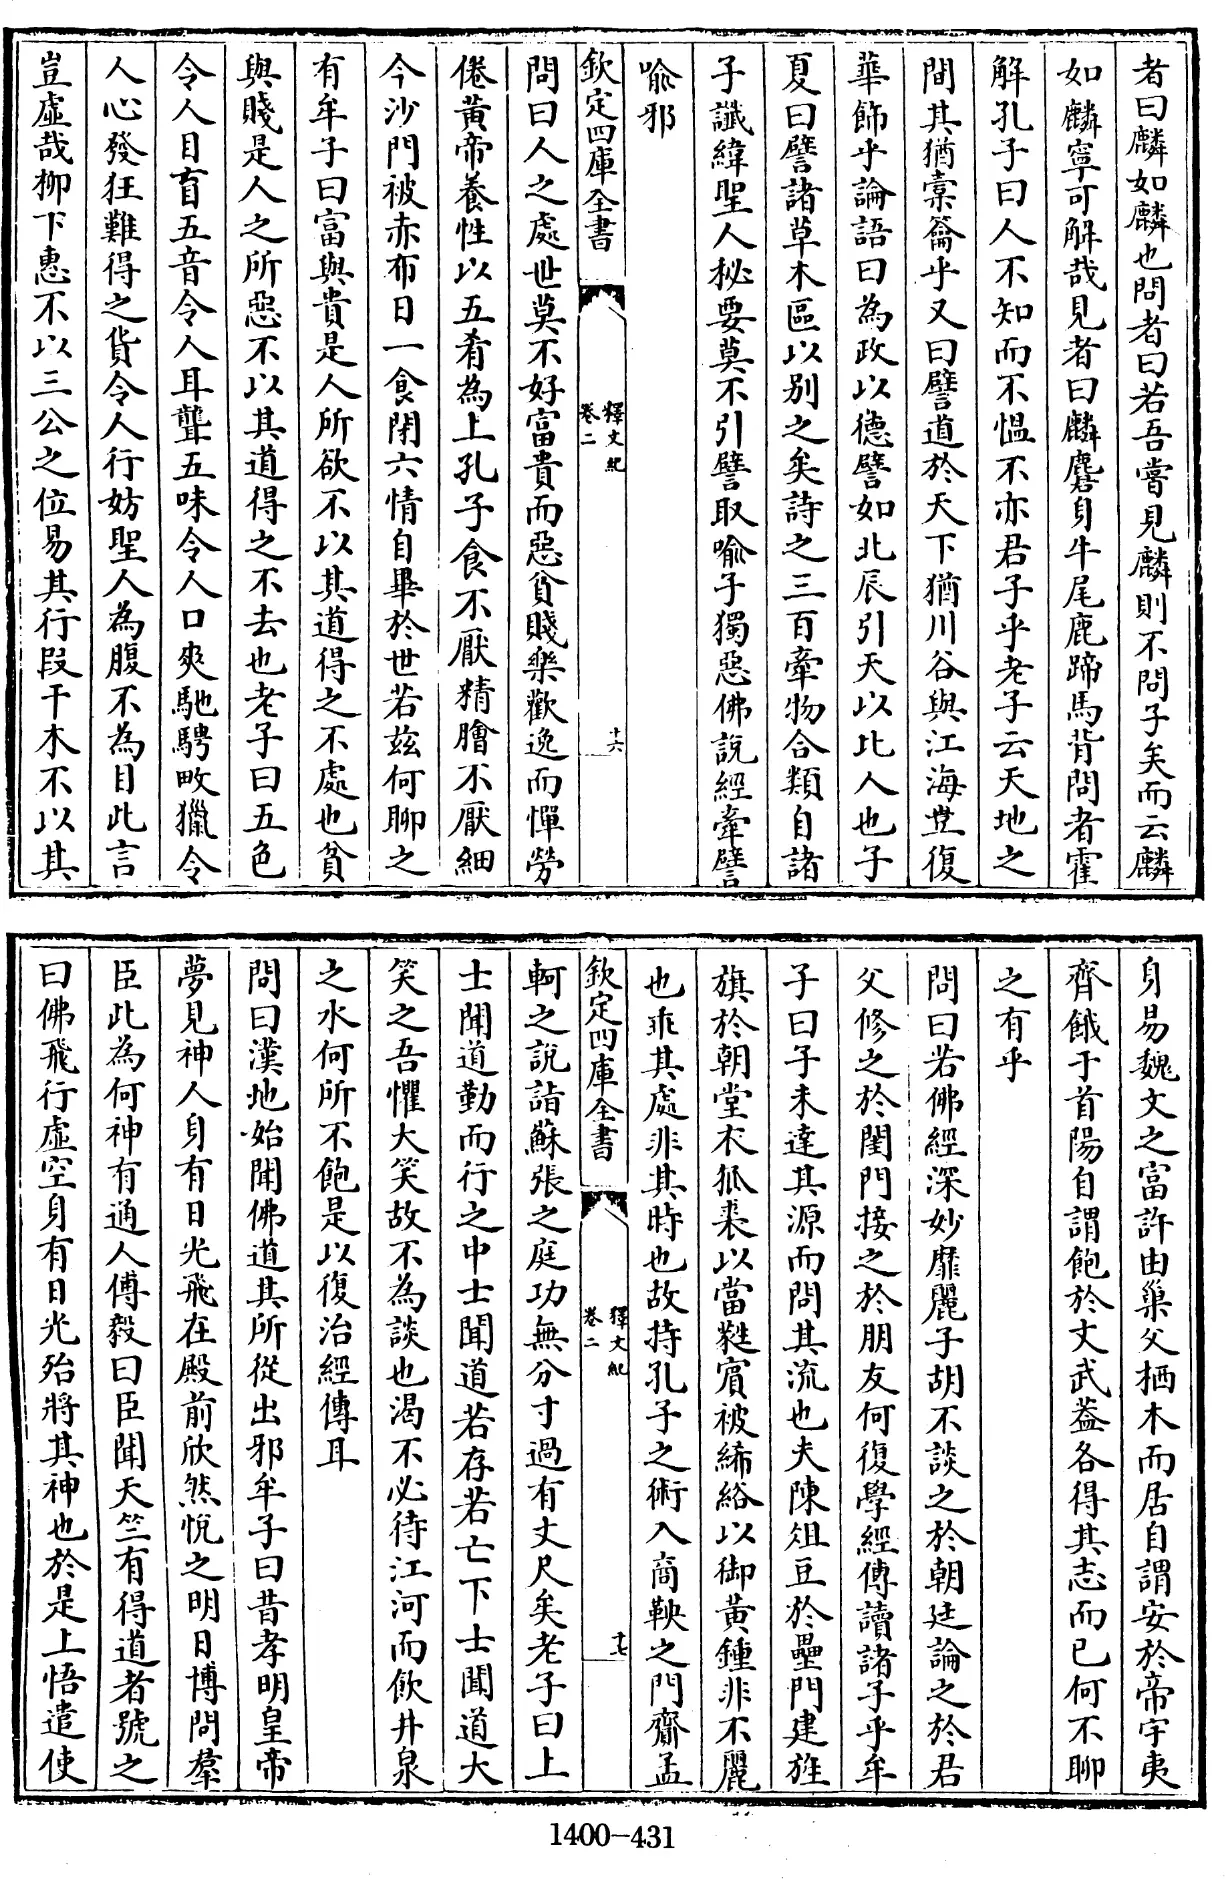 者曰麟如麟也問者曰若吾嘗見麟則不問子矣而云麟
如麟寧可解哉見者曰麟麏身牛尾鹿蹄馬背問者霍
解孔子曰人不知而不愠不亦君子乎老子云天地之
間其猶橐籥乎又曰譬道於天下猶川谷與江海豈復
華飾乎論語曰為政以德譬如北辰引天以比人也子
夏曰譬諸草木區以别之矣詩之三百牽物合類自諸
子讖緯聖人秘要莫不引譬取喻子獨惡佛說經牽譬
喻邪
欽定四庫全書
釋文紀
卷二
十六
問曰人之處世莫不好富貴而惡貧賤樂歡逸而憚勞
倦黃帝養性以五肴為上孔子食不厭精膾不厭細
今沙門被赤布日一食閉六情自畢於世若兹何聊之
有牟子曰富與貴是人所欲不以其道得之不處也貧
與賤是人之所惡不以其道得之不去也老子曰五色
令人目盲五音令人耳聾五味令人口爽馳騁畋獵令
人心發狂難得之貨令人行妨聖人為腹不為目此言
豈虛哉柳下惠不以三公之位易其行段干木不以其
身易魏文之富許由巢父栖木而居自謂安於帝宇夷
齊餓于首陽自謂飽於文武葢各得其志而已何不聊
之有乎
問曰若佛經深妙靡麗子胡不談之於朝廷論之於君
父修之於閨門接之於朋友何復學經傳讀諸子乎牟
子曰子未達其源而問其流也夫陳俎豆於壘門建旌
旗於朝堂衣狐裘以當蕤賓被絺綌以御黃鍾非不麗
也乖其處非其時也故持孔子之術入商鞅之門齎孟
欽定四庫全書
釋文紀
卷二
十七
軻之說詣蘇張之庭功無分寸過有丈尺矣老子曰上
士聞道勤而行之中士聞道若存若亡下士聞道大
笑之吾懼大笑故不為談也渴不必待江河而飲井泉
之水何所不飽是以復治經傳耳
問曰漢地始聞佛道其所從出邪牟子曰昔孝明皇帝
夢見神人身有日光飛在殿前欣然悅之明日博問羣
臣此為何神有通人傅毅曰臣聞天竺有得道者號之
曰佛飛行虛空身有日光殆將其神也於是上悟遣使
1400-431